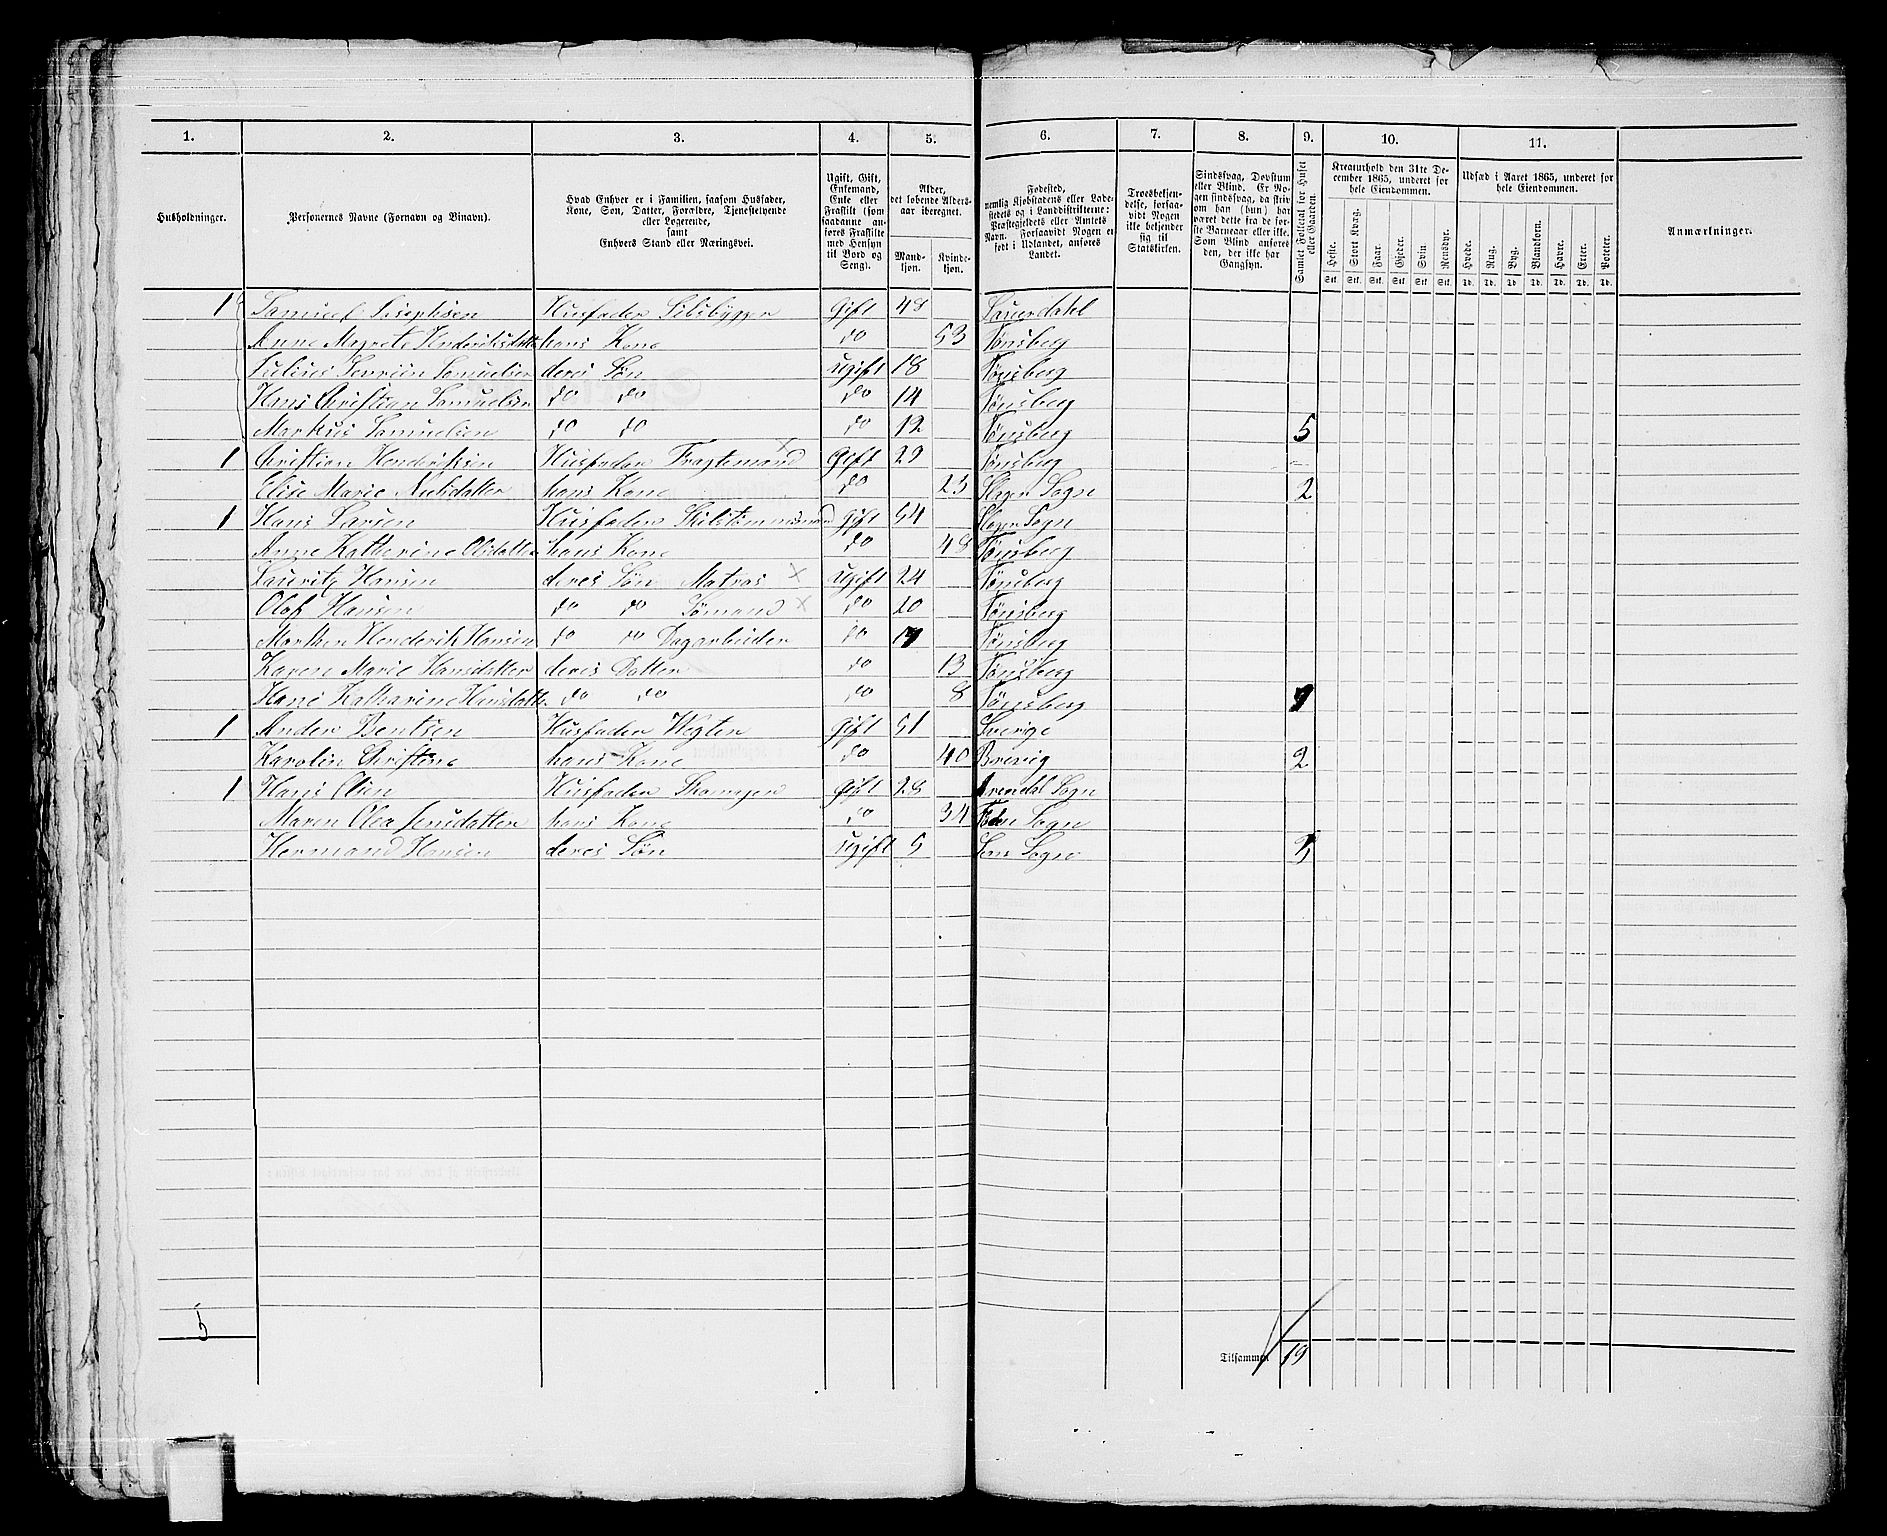 1. 2. 3. 4. 5. 6. 7. 8. 9. 10. 11.
Husholdninger.
Personernes Navne (Fornavn og Binavn).
Hvad Enhver er i Familien, saasom Husfader,
Kone, Søn, Datter, Forældre, Tjenestetyende
eller Logerende,
samt
Enhvers Stand eller Næringsvei.
Ugift, Gift,
Enkemand,
Enke eller
Fraskilt (som
saadanne an-
føres Fraskilte
med Hensyn
til Bord og
Seng).
Alder,
det løbende Alders-
aar iberegnet.
Mand-
kjøn.
Kvinde-
kjøn.
Fødested,
nemlig Kjøbstadens eller Lade-
stedets og i Landdistrikterne
Præstegjeldets eller Amtets
Navn. Forsaavidt Nogen er
født i Udlandet, anføres
Landet.
Troesbekjen-
delse, forsaa-
vidt Nogen
ikke bekjender
sig til
Statskirken.
Sindssvag, Døvstum
eller Blind. Er No-
gen sindssvag, da skriv
om han (hun) har
været dette fra de før-
ste Barneaar eller ikke.
Som Blind anføres
den, der ikke har
Gangsyn.
Samlet Folketal for Huset
eller Gaarden.
Kreaturhold den 31te De-
cember 1865, underet for
hele Eiendommen.
Heste. Stort Kvæg. Faar. Gjeder. Svin. Rensdyr.
Stk. Stk. Stk. Stk. Stk. Stk.
Udsæd i Aaret 1865, underet for
hele Eiendommen.
Hvede. Rug. Byg. Blandkorn. Havre. Erter. Poteter.
Td. Td. Td. Td. Td. Td. Td.
Anmærkninger.
1 Samuel Josephsen Husfader Sebsbygger Gift 48 Laurdahl
Anne Mgrete Hinderiksdatter hans Kone do 53 Tönsberg
Julius Sevriin Samuelsen deres Søn Ugift 18 Tönsberg
Hans Christian Samuelsen do do do 14 Tönsberg
Markus Samuelsen do do do 12 Tönsberg 5
1 Christian Henderiksen Husfader Fragtemand × Gift 29 Tönsberg
Elise Marie Nilsdatter hans Kone do 23 Slagen Sogn 2
1 Hans Larsen Husfader Skibstømmermand Gift 54 Slagen Sogn
Anne Katherine Olsdatter hans Kone do 48 Tönsberg
Lauritz Hansen deres Søn Matros × Ugift 24 Tönsberg
Olof Hansen do do Sømand × do 20 Tönsberg
Morthen Henderik Hansen do do Dagarbeider do 17 Tönsberg
Karen Marie Hansdatter deres Datter do 13 Tönsberg
Hane Katharine Hansdatter do do do 8 Tönsberg 7
1 Anders Bentsen Husfader Vegter Gift 51 Sverige
Karolin Christine hans Kone do 40 Brevig 2
1 Hans Olsen Husfader Skomager Gift 28 Arendal Sogn
Maren Olea Jensdatter hans Kone do 34 Sogn
Hermand Hansen deres Søn Ugift 5 Sem Sogn 3
5
Tilsammen 19